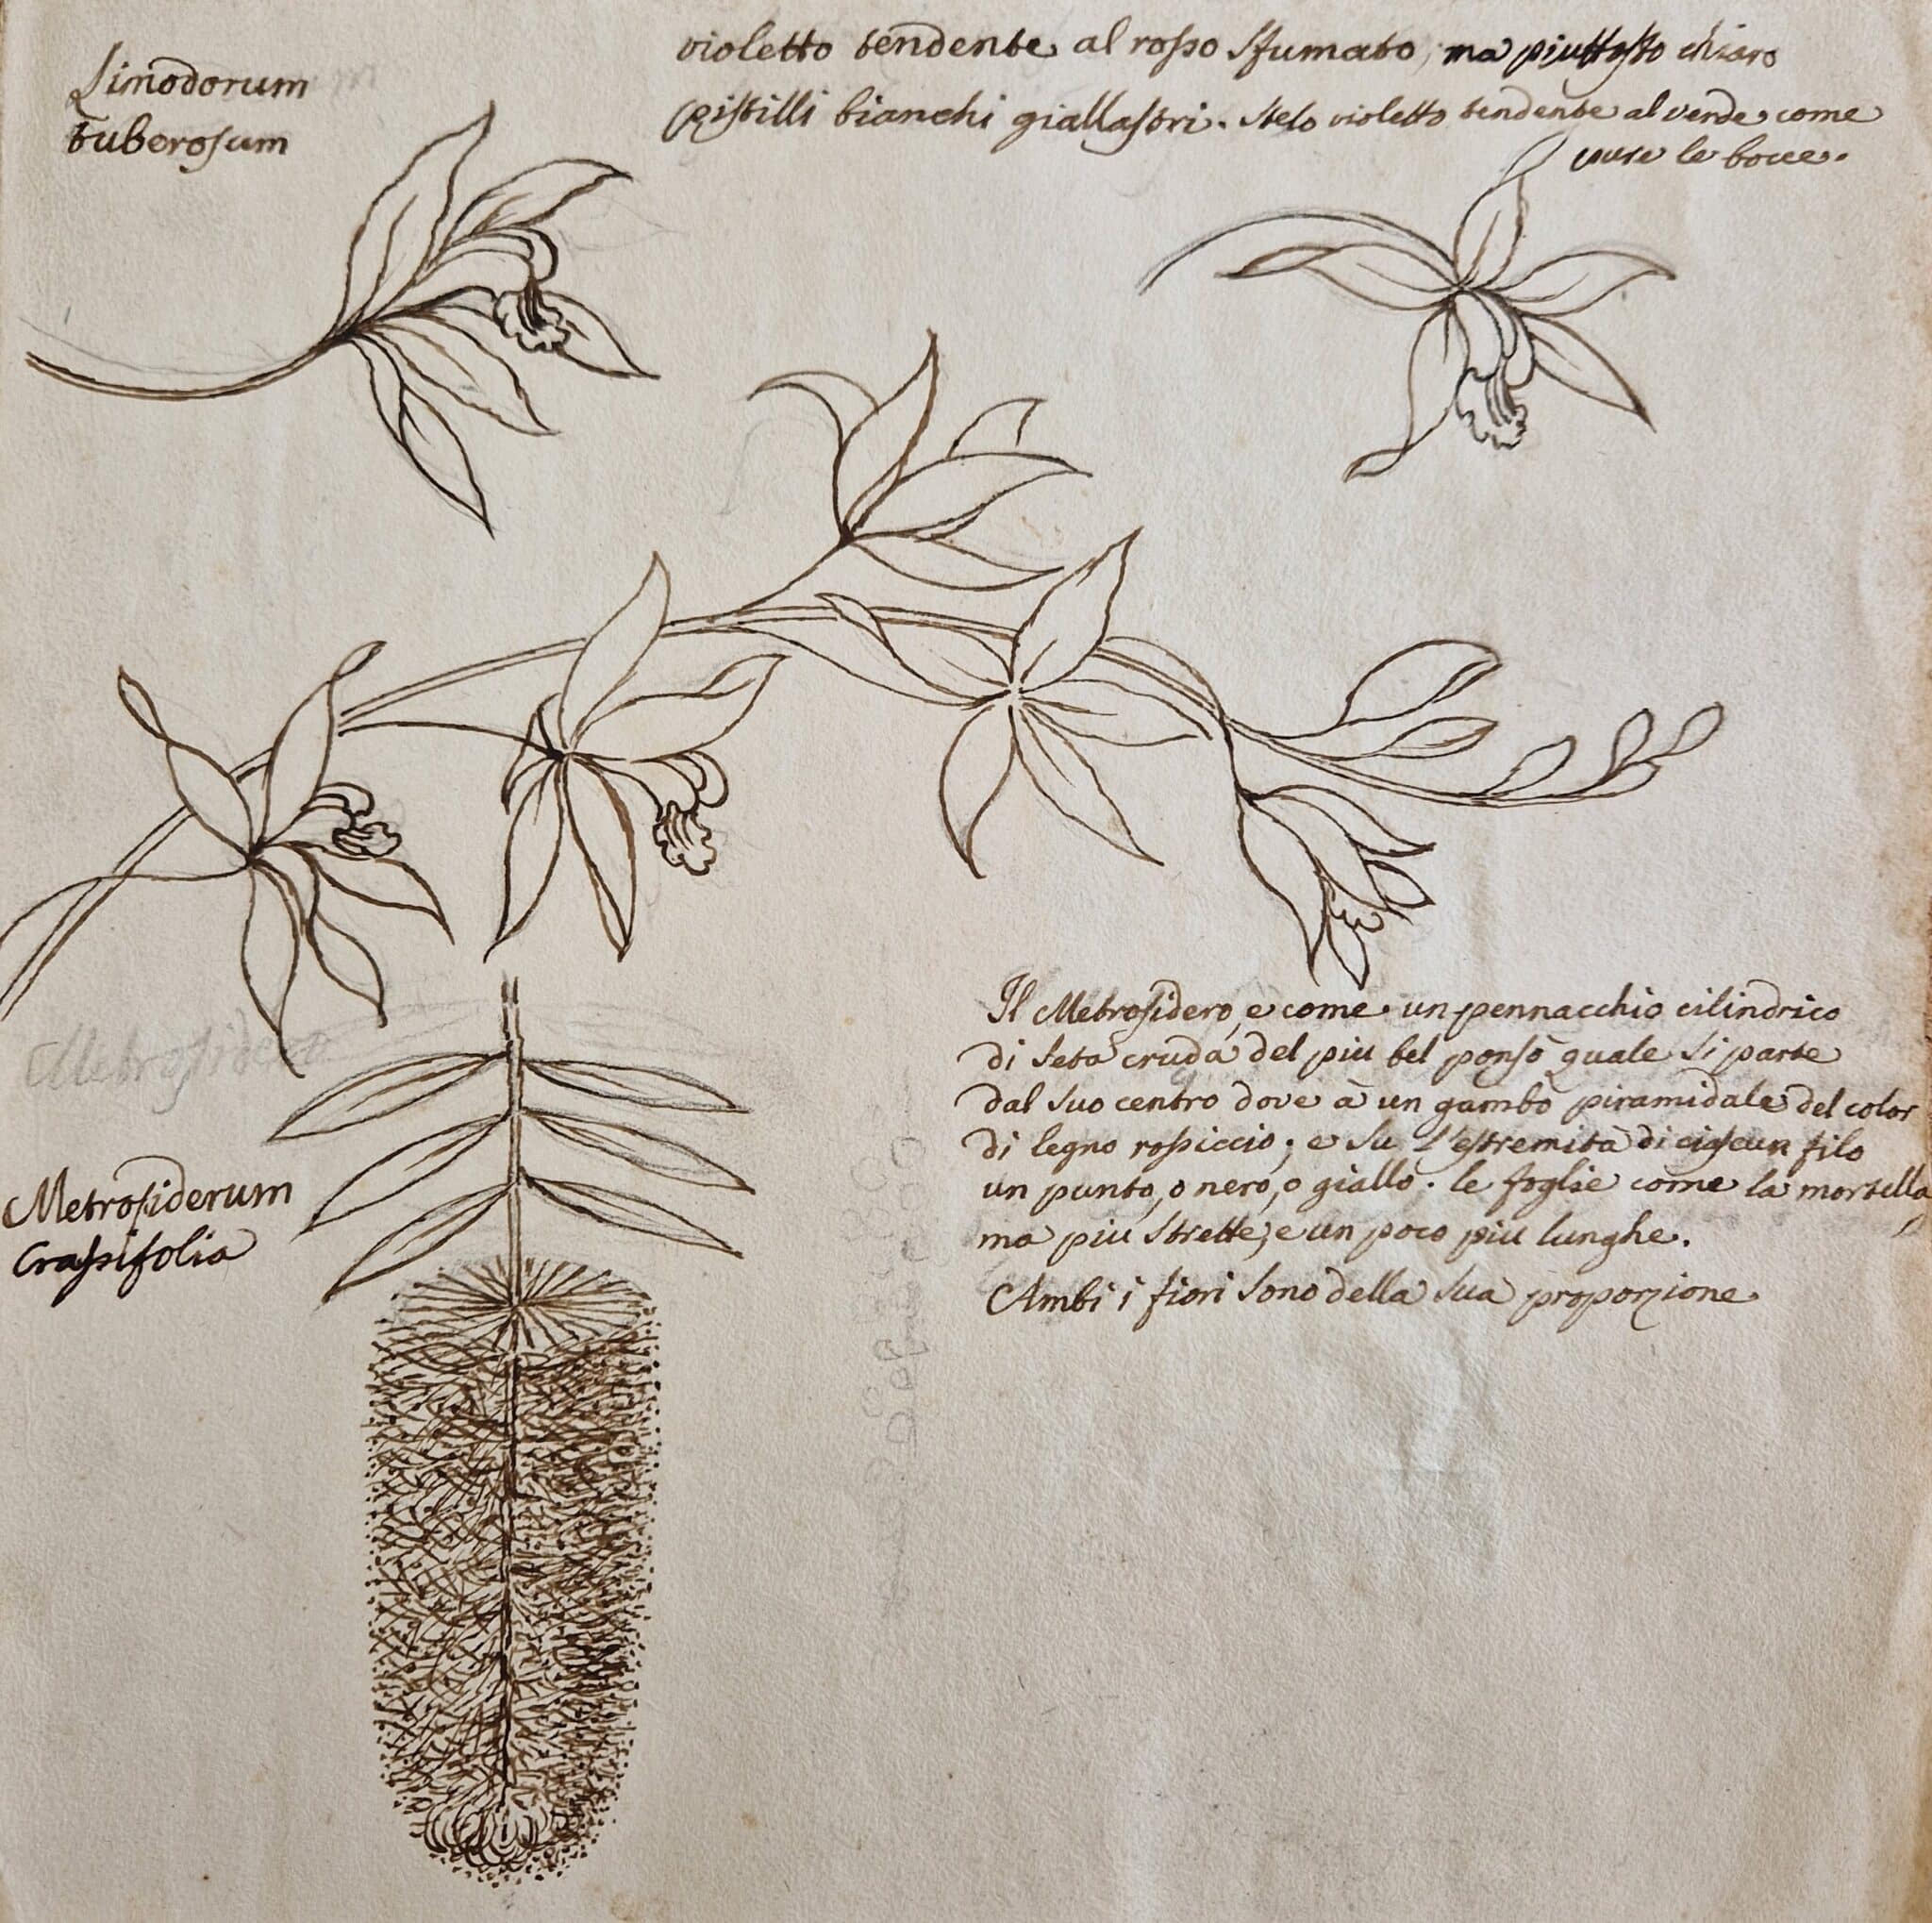 Limodorum
tuberosum
violetto tendente al rosso sfumato, ma piuttosto chiaro
pistilli bianchi giallastri. Stelo violetto tendente al verde come
pure le bocce.
Metrosidero
Metrosiderum
Crassifolia
Il Metrosidero, e come un pennacchio cilindrico
di seta cruda del piu bel ponsò quale si parte
dal suo centro dove à un gambo piramidale del color
di legno rossiccio; e su l'estremità di ciascun filo
un punto, o nero, o giallo. le foglie come la mortella,
ma piu strette, e un poco piu lunghe.
Ambi i fiori sono della sua proporzione